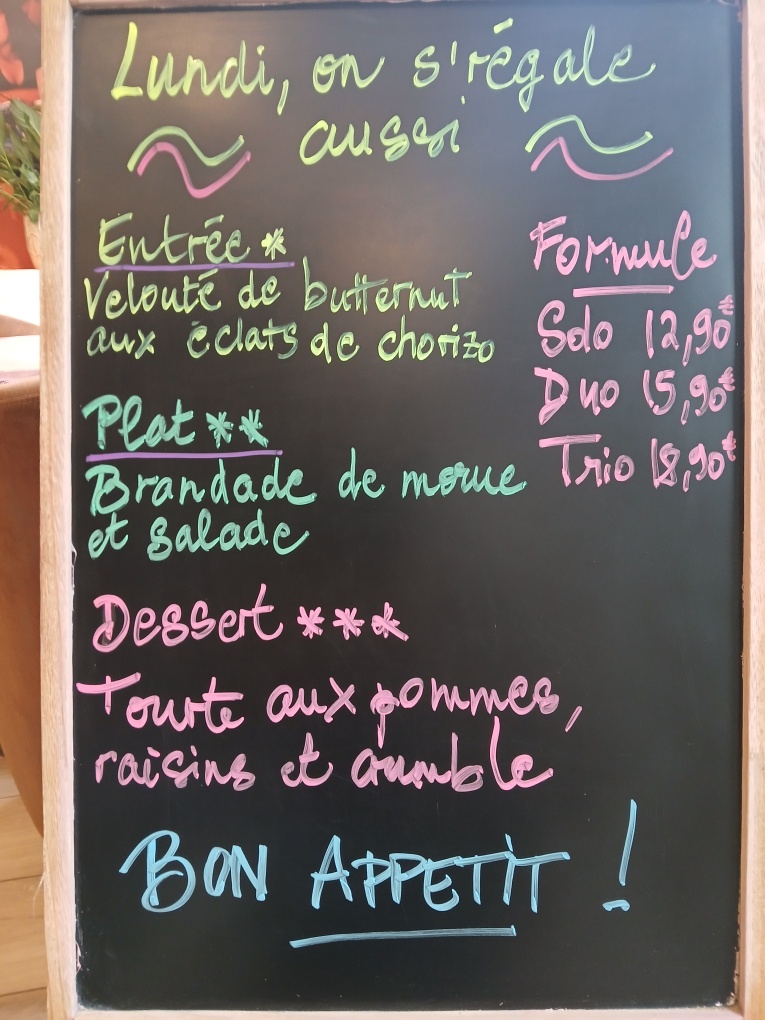 Lundi, on s'régale
aussi
Entrée *
Velouté de butternut
aux éclats de chorizo
Plat **
Brandade de morue
et salade
Dessert ***
Tourte aux pommes,
raisins et crumble
Formule
Solo 12,90€
Duo 15,90€
Trio 18,90€
BON APPETIT !